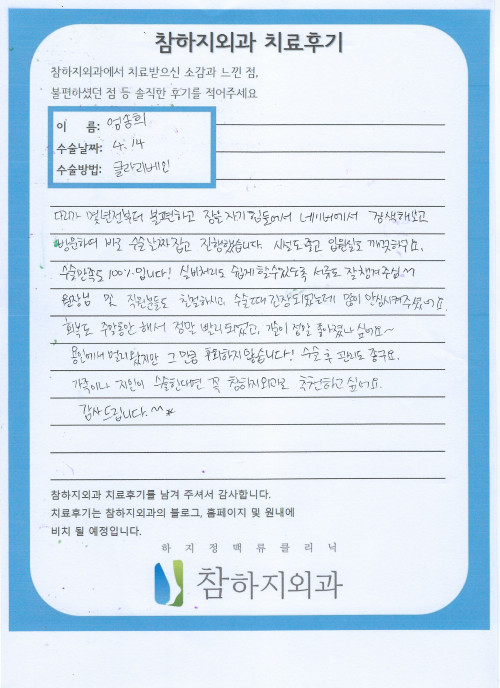 참하지외과 치료후기
참하지외과에서 치료받으신 소감과 느낀 점,
불편하셨던 점 등 솔직한 후기를 적어주세요
이 름: 엄송희
수술날짜: 4. 14
수술방법: 클라리베인
다리가 몇년전부터 불편하고 잠을 자기 힘들어서 네이버에서 검색해보고
방문하여 바로 수술날짜잡고 진행했습니다. 시설도 좋고 입원실도 깨끗하구요,
수술만족도 100%입니다! 실비처리도 쉽게 할수있도록 서류도 잘 챙겨주심^^
원장님 및 직원분들도 친절하시고 수술때 긴장되었는데 많이 안심시켜주셨어요.
회복도 주말동안 해서 정말 빨리되었고, 기술이 정말 좋아졌나 싶어요~
용인에서 멀리왔지만 그 만큼 후회하지않습니다! 수술 후 관리도 좋구요.
가족이나 지인이 수술한다면 꼭 참하지외과로 추천하고 싶어요.
감사드립니다.^^*
참하지외과 치료후기를 남겨 주셔서 감사합니다.
치료후기는 참하지외과의 블로그, 홈페이지 및 원내에
비치 될 예정입니다.
하지정맥류클리닉
참하지외과